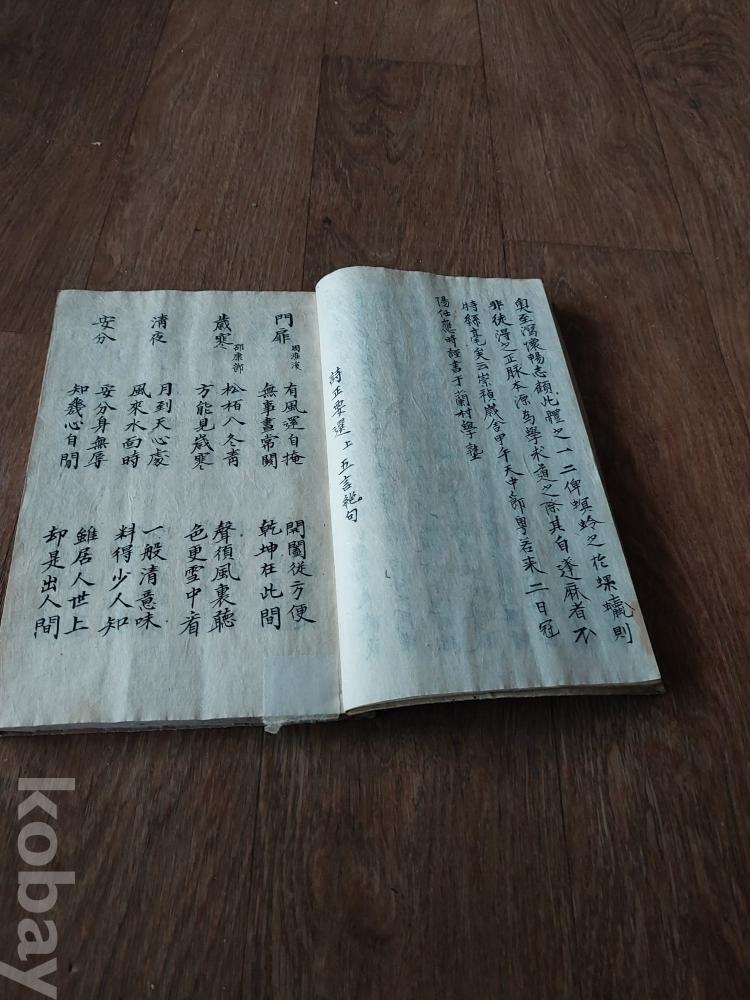 奥至瀉懷暢志顧此體之一二俾螟蛉之於蜾蠃則
非徒得之正脉本源為學求道之際其自蓬麻者不
時絲毫矣云崇禎歲舍甲午天中節粤若来二日冠
陽任應時謹書于蘭村學塾
詩正要選上五言絶句
門扉 周濂溪
有風還自掩 無事晝常關
開闔從方便 乾坤在此間
歲寒 邵康節
松栢入冬青 方能見歲寒
聲須風裏聽 色更雪中看
清夜
月到天心處 風來水面時
一般清意味 料得少人知
安分
安分身無辱 知幾心自閒
雖居人世上 却是出人間
kobay